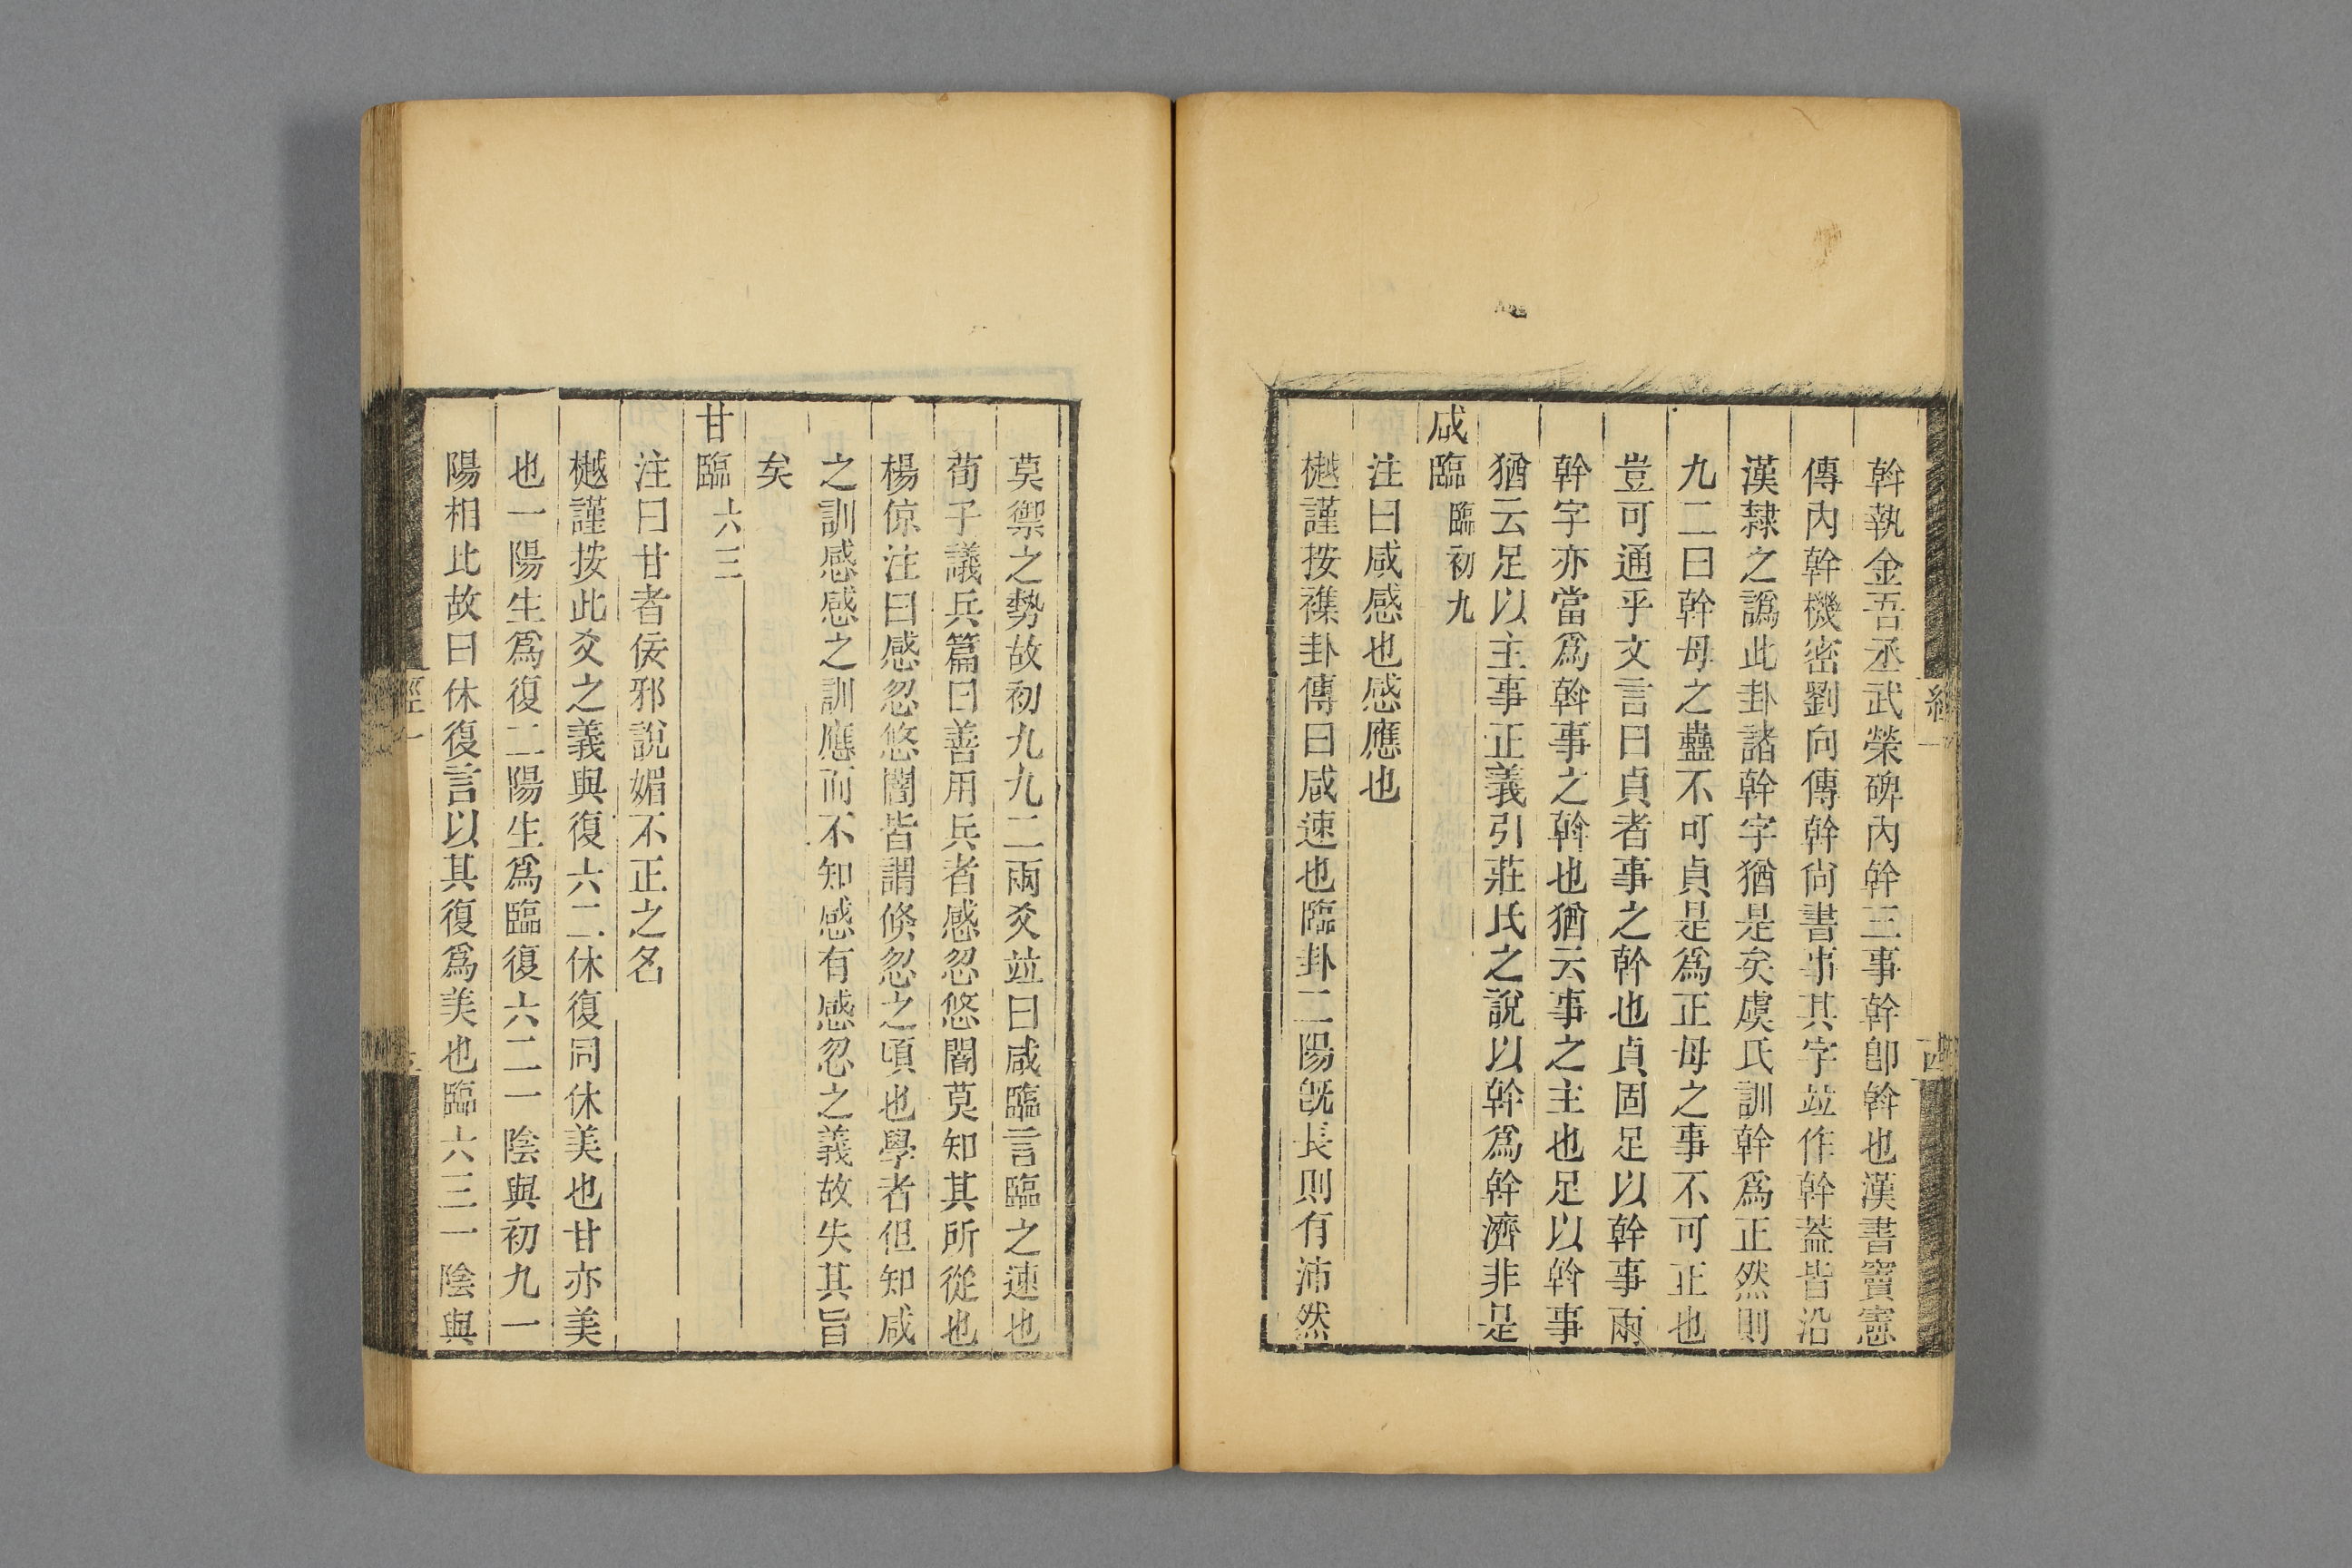 幹執金吾丞武榮碑內幹三事幹卽斡也漢書竇憲
傳內幹機密劉向傳幹尙書事其字竝作幹蓋皆沿
漢隸之譌此卦諸幹字猶是矣虞氏訓幹爲正然則
九二曰幹母之蠱不可貞是爲正母之事不可正也
豈可通乎文言曰貞者事之幹也貞固足以幹事兩
幹字亦當爲斡事之斡也猶云事之主也足以斡事
猶云足以主事正義引莊氏之說以幹爲幹濟非是
咸臨臨初九
注曰咸感也感應也
樾謹按襍卦傳曰咸速也臨卦二陽旣長則有沛然
莫禦之勢故初九九二兩爻竝曰咸臨言臨之速也
荀子議兵篇曰善用兵者感忽悠闇莫知其所從也
楊倞注曰感忽悠闇皆謂倏忽之頃也學者但知咸
之訓感感之訓應而不知感有感忽之義故失其旨
矣
甘臨六三
注曰甘者佞邪說媚不正之名
樾謹按此爻之義與復六二休復同休美也甘亦美
也一陽生爲復二陽生爲臨復六二一陰與初九一
陽相比故曰休復言以其復爲美也臨六三一陰與